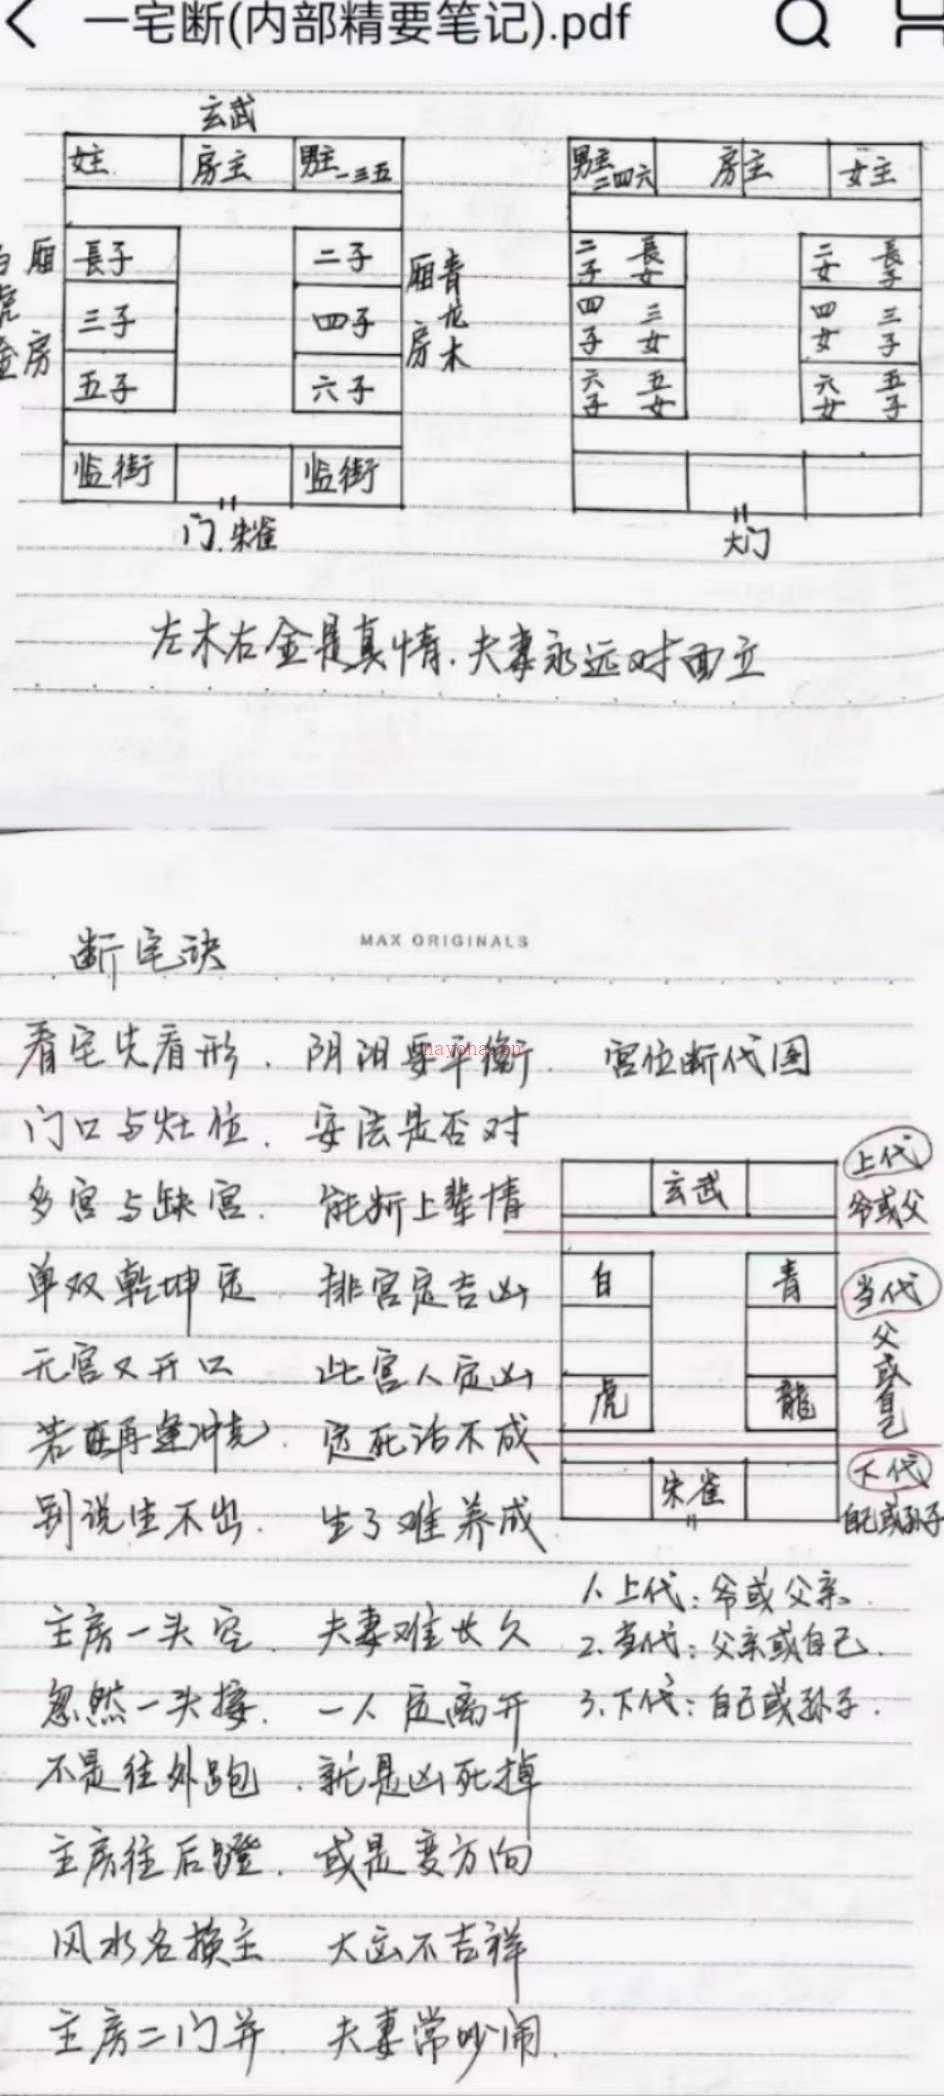 一宅断(内部精要笔记).pdf
玄武
女主 房主 男主 一三五
男主 二四六 房主 女主
長子 二子
三子 四子
五子 六子
厢房
厢房
青龙木
二子 長女 二女 長子
四子 三女 四女 三子
六子 五女 六女 五子
监街 监街
门.朱雀
大门
左木右金是真情.夫妻永远对面立
MAX ORIGINALS
断宅诀
看宅先看形. 阴阳要平衡. 宫位断代图
nayona.cn
门口与灶位. 安法是否对
多宫与缺宫. 能断上辈情
单双乾坤定 排宫定吉凶
无宫又开口 此宫人定凶
若在再逢冲克. 定死活不成
别说生不出. 生了难养成
玄武
白 青
虎 龍
朱雀
上代
爷或父
当代
父或自己
下代
自己或孙子
1.上代:爷或父亲.
2.当代:父亲或自己.
3.下代:自己或孙子.
主房一头空. 夫妻难长久
忽然一头接. 一人定离开
不是往外跑. 就是凶死掉
主房往后蹬. 或是变方向
风水名换主 大凶不吉祥
主房二门并 夫妻常吵闹.